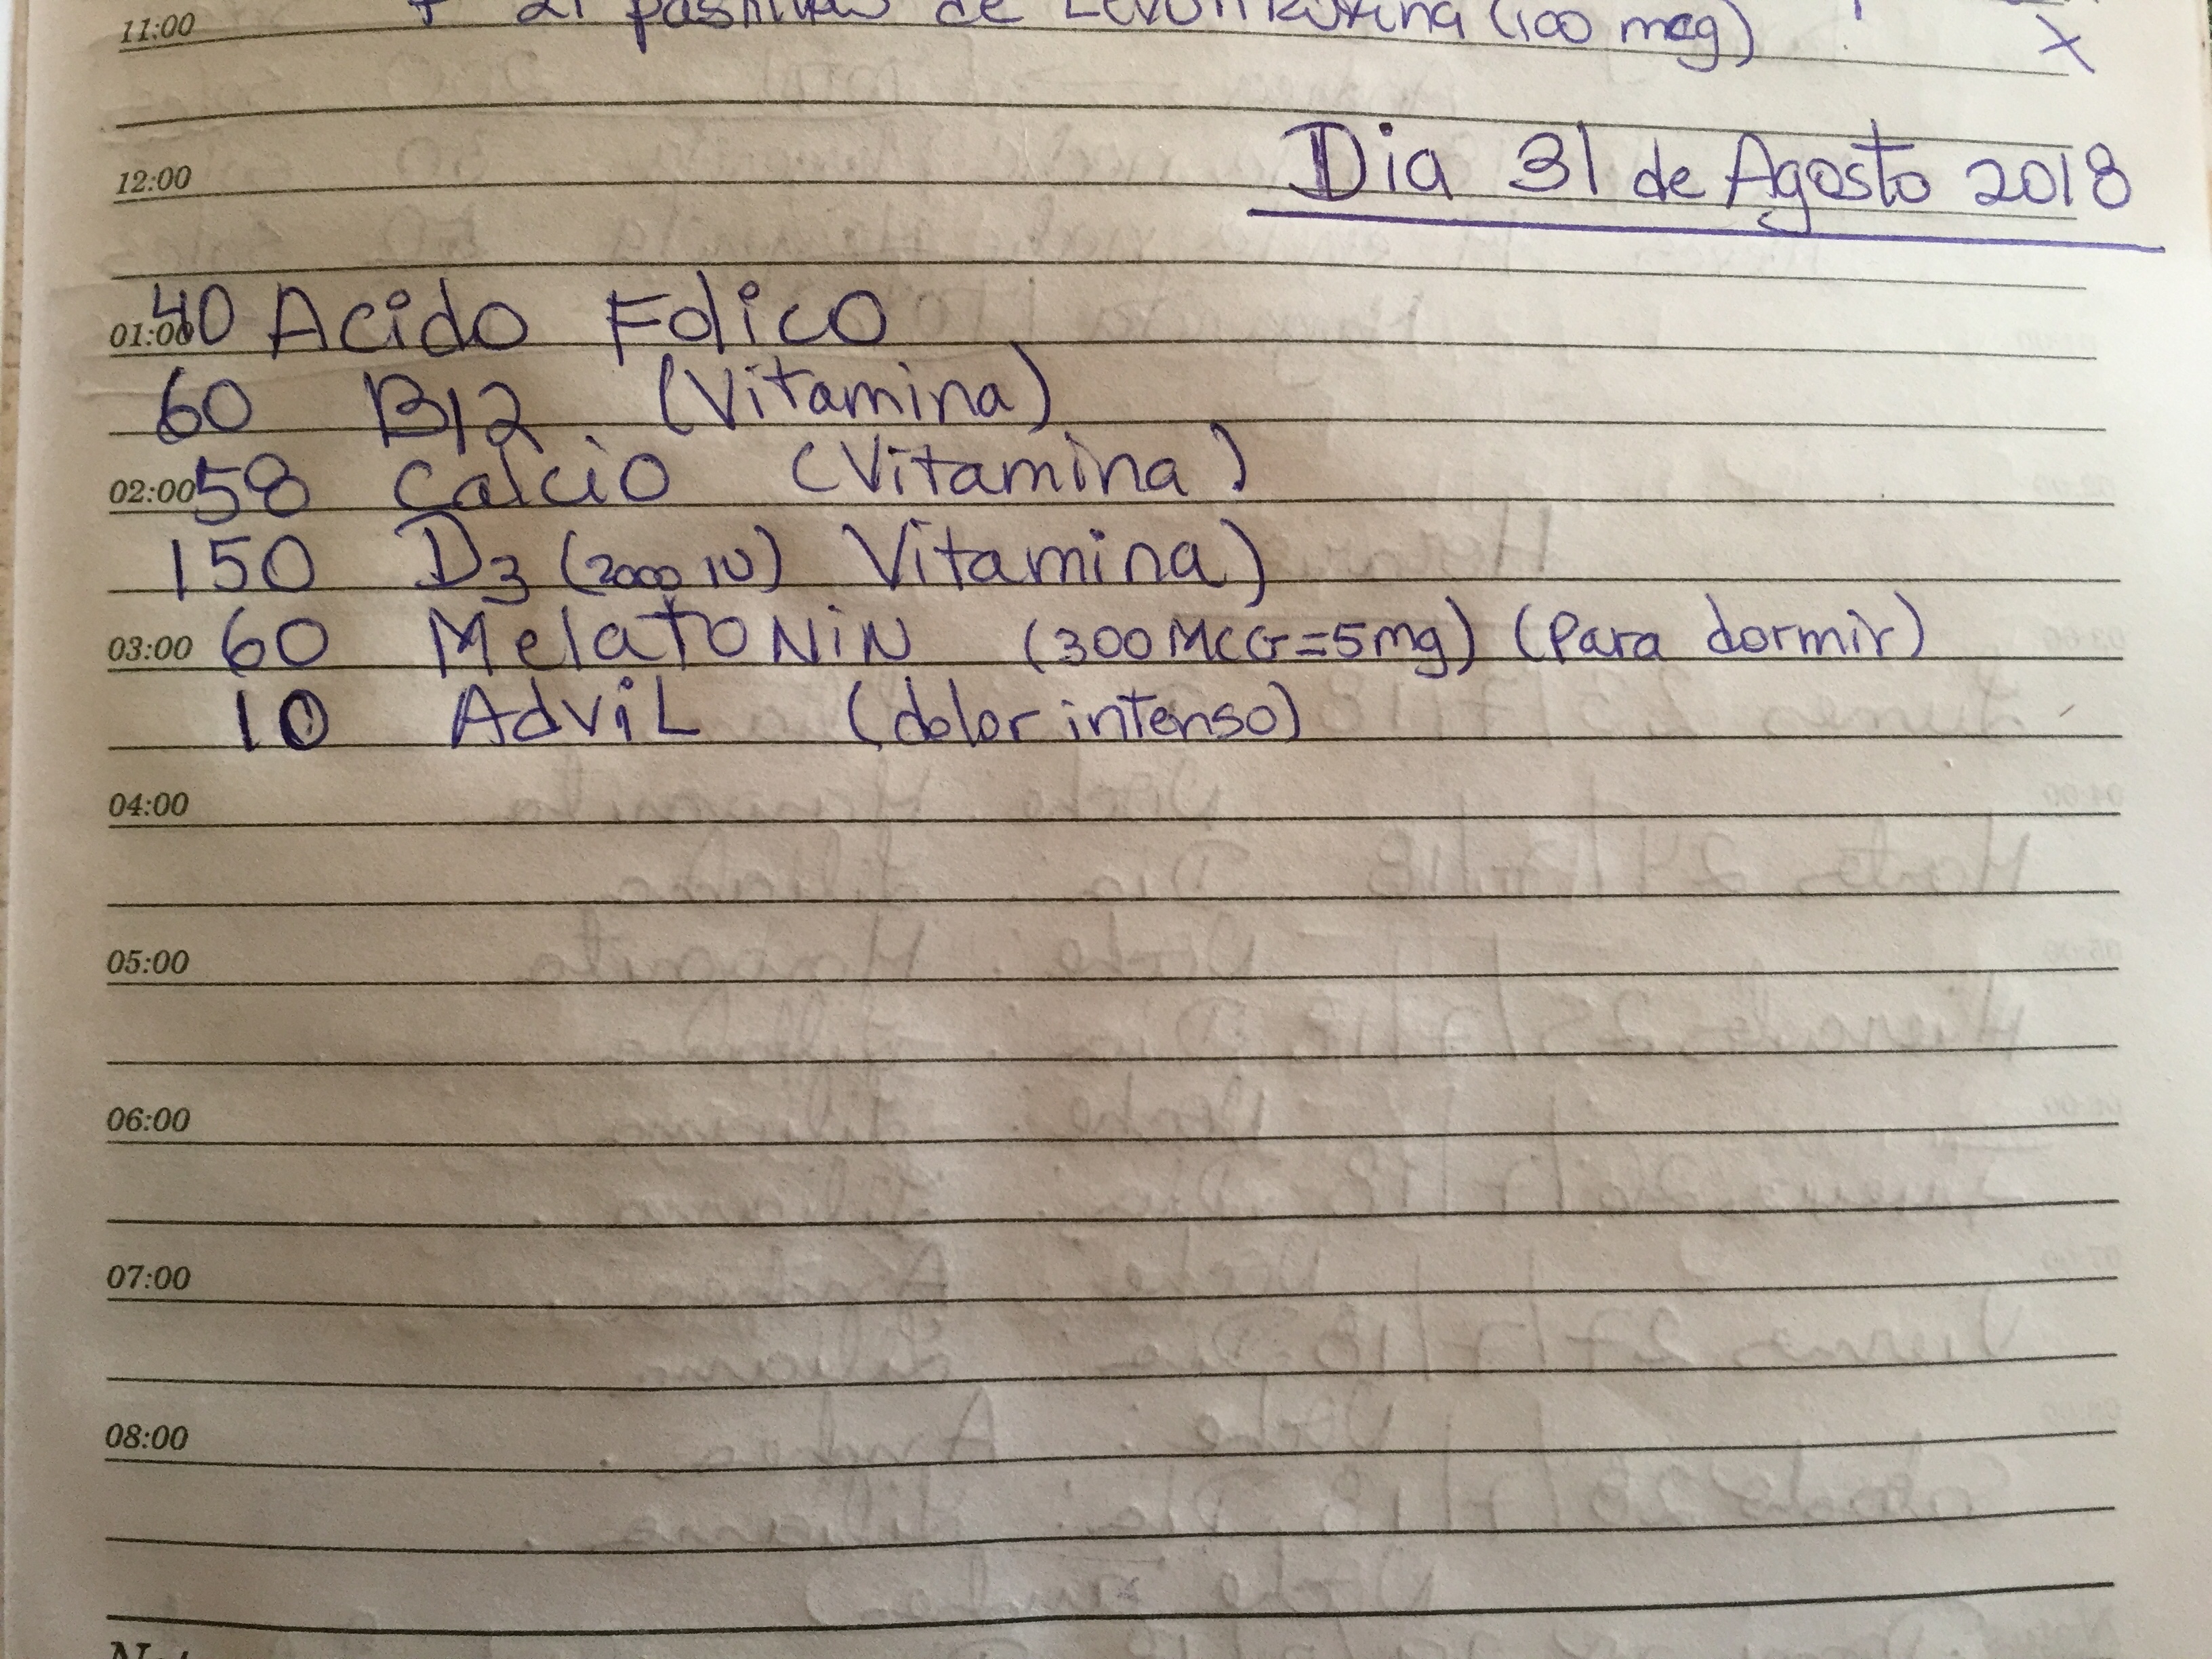 11:00 + 21 pastillas de Levotiroxina (100 mcg)
X
12:00 Dia 31 de Agosto 2018
01:00 40 Acido Folico
60 B12 (Vitamina)
02:00 58 Calcio (Vitamina)
150 D3 (2000 IU) Vitamina)
03:00 60 MelatoNiN (300 MCG=5mg) (Para dormir)
10 AdviL (dolor intenso)
04:00
05:00
06:00
07:00
08:00